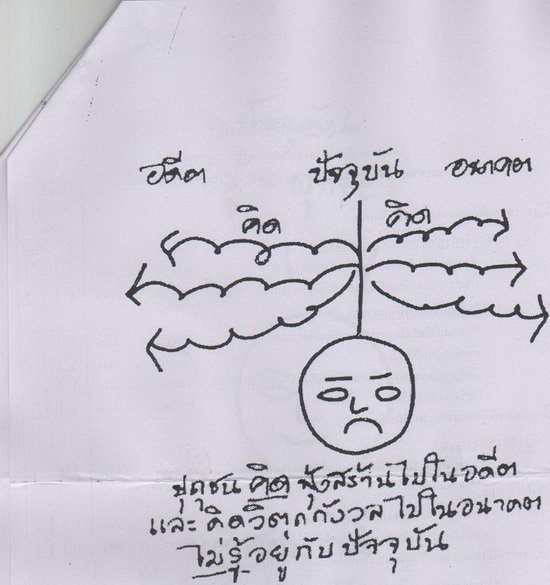 อดีต ปัจจุบัน อนาคต
คิด คิด
ปุถุชน คิด ฟุ้งสร้านไปในอดีต
และ คิดวิตกกังวลไปในอนาคต
ไม่รู้อยู่กับปัจจุบัน